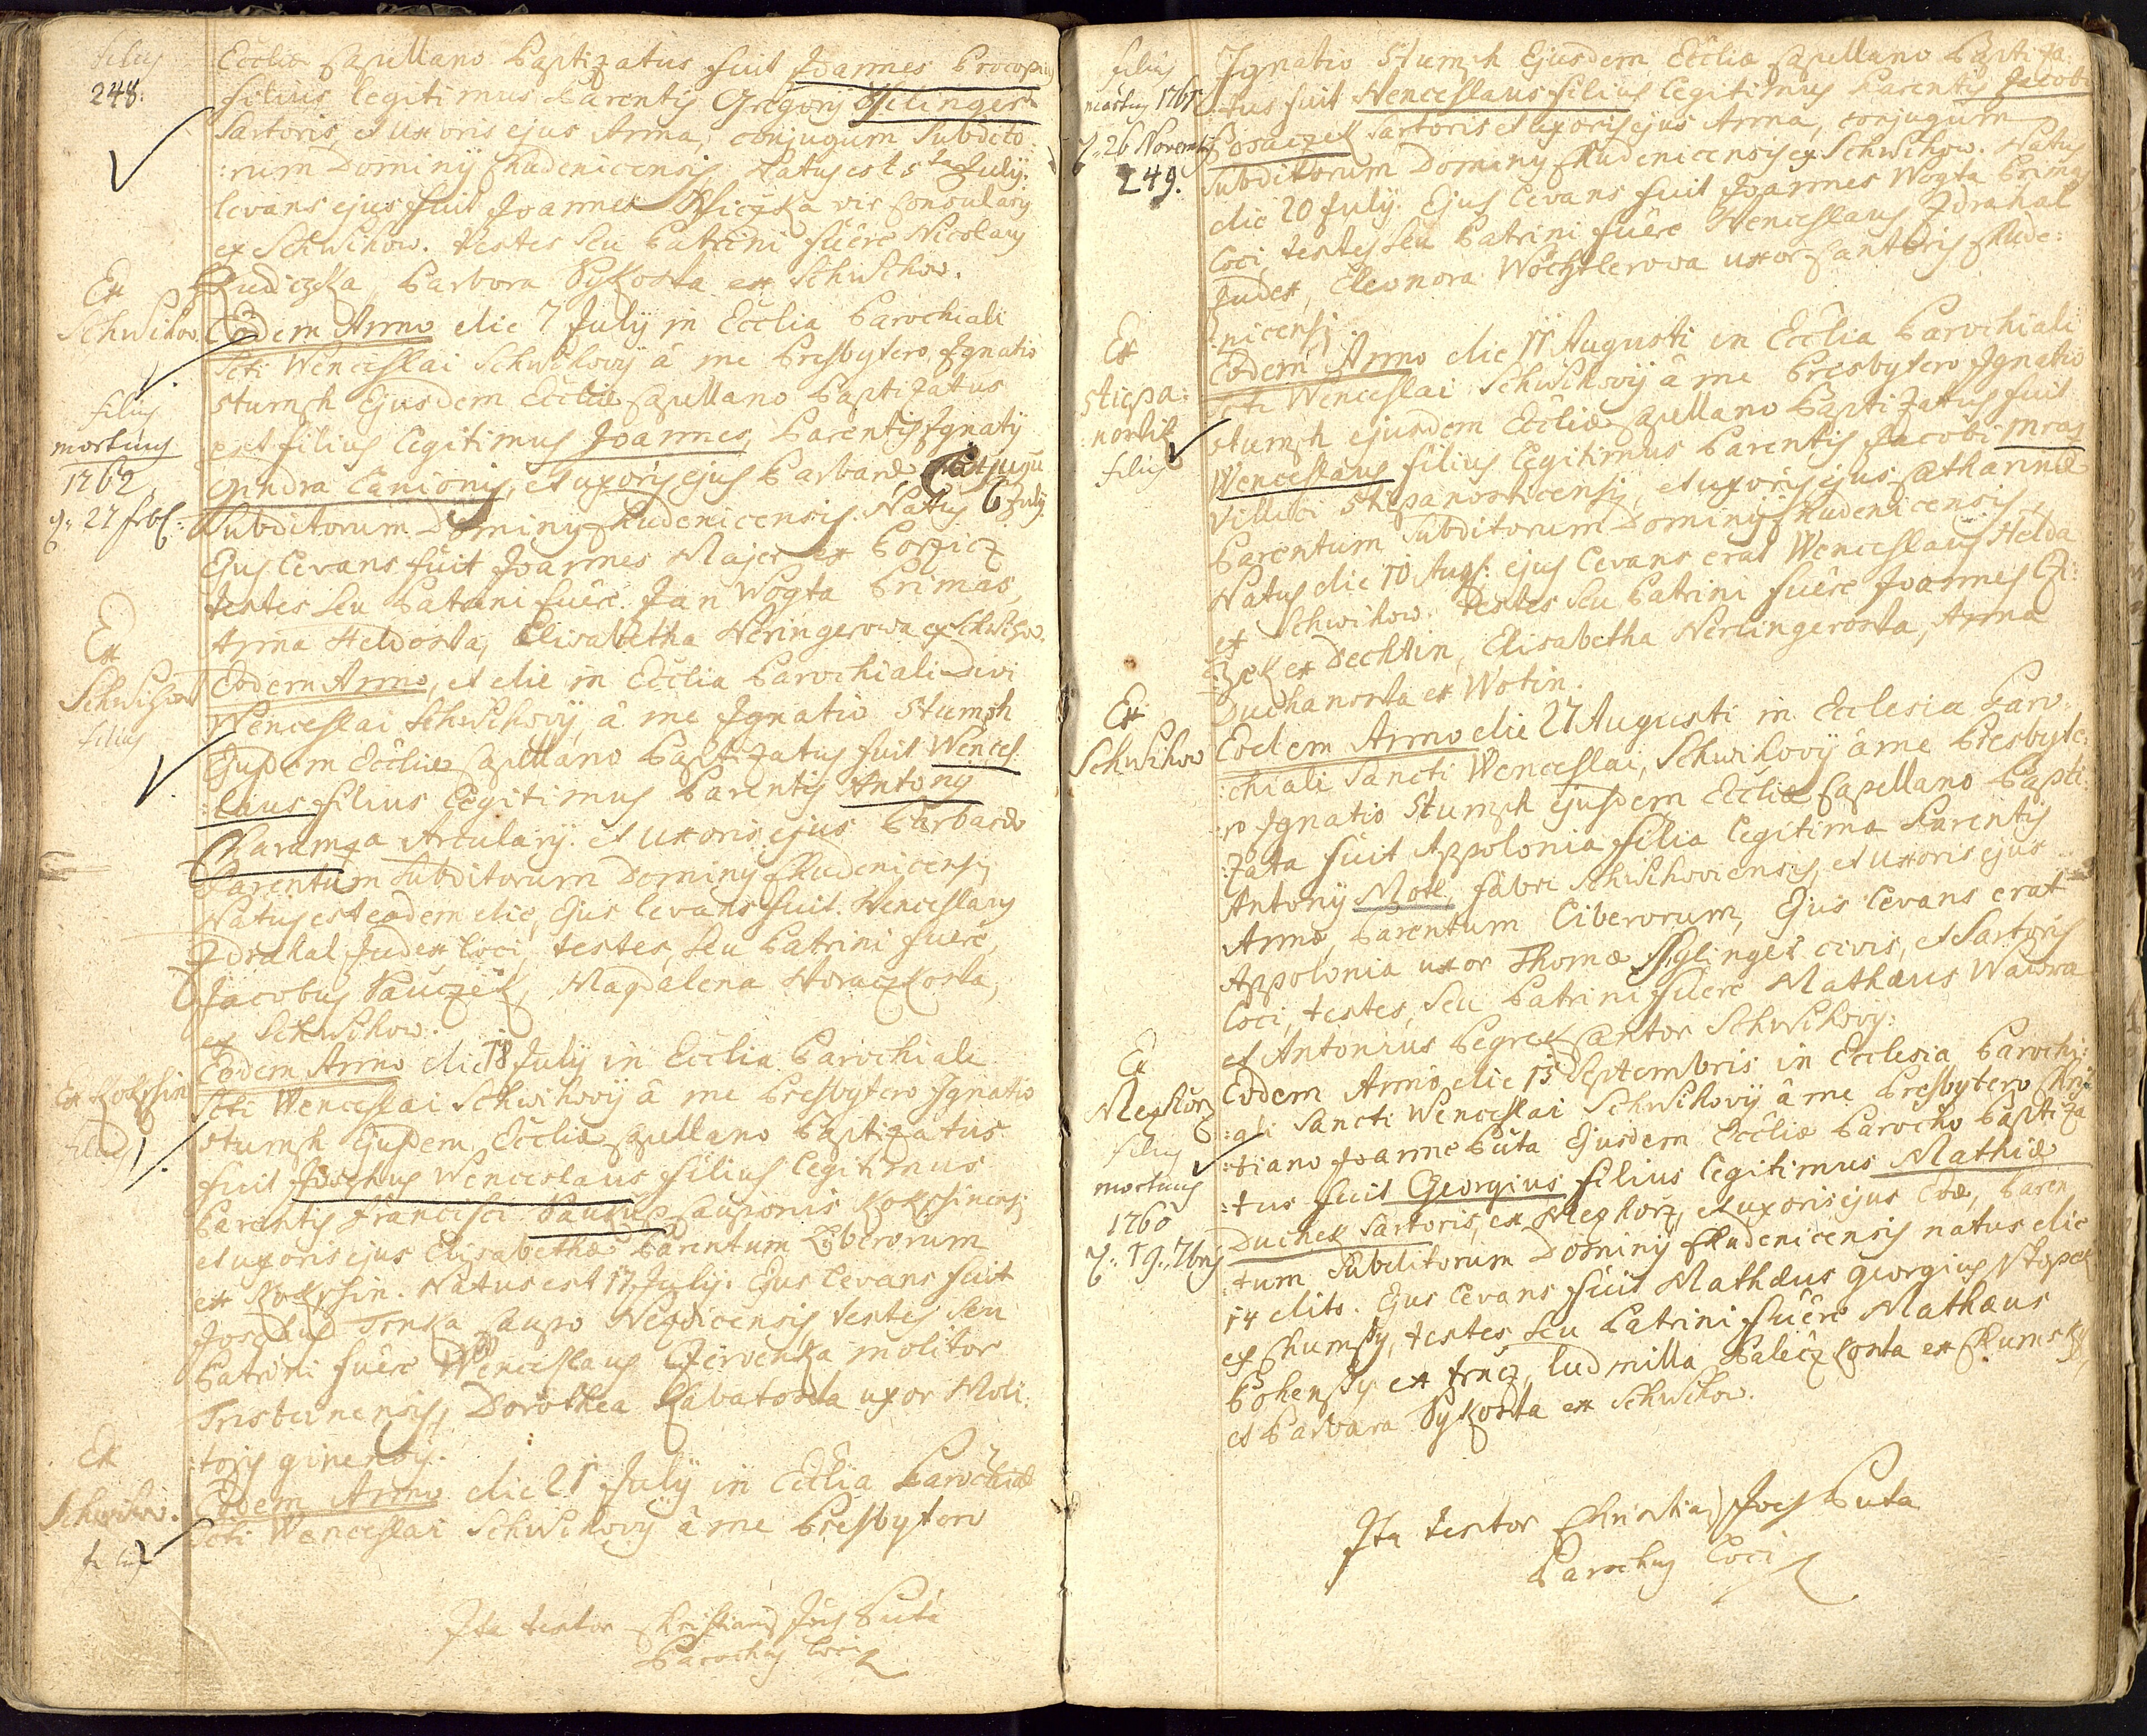 filius
248.
Ecclia Capellano Baptizatus fuit Joannes Procopius
filius legitimus Parentis Gregorij
Sartoris, et uxoris ejus Anna, conjugum Subdito
:rum Dominij Chudenicensis. Natus est 5ta July.
levans ejus fuit Joannes vir Consularis
ex Schwihow. testes seu Patrini fuêre Nicolaus
Barbora Sykorka ex Schwihow.
Ex
Schwihow
filius
mortuus
1762
d: 27 frbr:
Eodem Anno die 7 July in Ecclia Parochiali
Scti Wenceslai Schwihovij â me Presbytero Ignatio
Stumph Ejusdem Ecclia Capellano Baptizatus
est filius legitimus Joannes, Parentis Ignatij
Gindra Lanionis, et uxoris ejus Barbarae, Conjugu
Subditorum Dominij Chudenicensis. Natus 6 July
Ejus levans fuit Joannes Majer ex Borzicz
testes seu Patrini fuêre Jan Wogta Primas,
Anna Heldowa, Elisabetha Neringerowa ex Schwihow.
Ex
Schwihow
filius
Eodem Anno, et die in Ecclia Parochiali Divi
Wenceslai Schwihovij, â me Ignatio Stumph
Ejusdem Eccliae Capellano Baptizatus fuit Wences
:laus filius legitimus Parentis Antonij
Charamza Arculary et uxoris ejus Barbarae
Parentum Subditorum Dominij Chudenicensis
Natus est eodem die, Ejus levans fuit Wenceslaus
Zdrahal Judex loci, testes, seu Patrini fuêre,
Jacobus Pauczek, Magdalena Horaczkowa,
ex Schwihow.
Ex Kokssin
filius
Eodem Anno die 18 July in Ecclia Parochiali
Scti Wenceslai Schwihovij â me Presbytero Ignatio
Stumph Ejusdem Eccliae Capellano Baptizatus
fuit Josephus Wenceslaus filius legitimus
Parentis Francisci Cauponis Kokssinensis
et uxoris ejus Elisabethae Parentum Liberorum
ex Kokssin. Natus est 17 July. Ejus levans fuit
Josephus Trnka Caupo Nezdicensis, testes seu
Patrini fuêre Wenceslaus Czervenka molitor
Dorothea uxor Moli:
:toris ginensis.
Ex
Schwihow.
filius
Eodem Anno die 21 July in Ecclia Parochiali
Scti Wenceslai Schwihovij â me Presbytero
Ita testor Christianus Joes Puta
Parochus loci
filius
mortuus 1765
d: 26 Novemb
249.
Ignatio Stumph Ejusdem Eccliae Capellano Baptiza:
:tus fuit Wenceslaus filius legitimus Parentis Jacobi
Sartoris et uxoris ejus Anna, conjugum
Subditorum Dominij Chudenicensis ex Schwihow. Natus
die 20 July. Ejus levans fuit Joannes Wogta Primas
loci, testes seu Patrini fuêre Wenceslaus Zdrahal
Judex, Eleonora Wochtlerowa uxor Cantoris Chude:
:nicensis
Ex
Stiepa:
:nowitz
filius
Eodem Anno die 11 Augusti in Ecclia Parochiali
Scti Wenceslai Schwihovij â me Presbytero Ignatio
Stumph ejusdem Eccliae Capellano Baptizatus fuit
Wenceslaus filius legitimus Parentis Jacobi Mraz
Villici Stiepanovicensis, et uxoris ejus Catharinae
Parentum Subditorum Dominij Chudenicensis,
Natus die 10 Augs: ejus levans erat Wenceslaus Helda
ex Schwihow. testes seu Patrini fuêre Joannes Czi:
:zek ex Dechtin, Elisabetha Nerlingerowa, Anna
Duchanowa ex Wotin.
Ex
Schwihow
Eodem Anno die 27 Augusti in Ecclesia Paro:
:chiali Sancti Wenceslai, Schwihovij â me Presbyte:
:ro Ignatio Stumph ejusdem Eccliae Capellano Bapti:
:zata fuit Appolonia filia legitima Parentis
Antonij Motl, fabri Schwihoviensis, et uxoris ejus
Anna, Parentum Liberorum, Ejus levans erat
Appolonia uxor Thomae civis, et Sartoris
loci, testes, seu Patrini fuêre Mathaeus Wawra
et Antonius Pegrek Cantor Schwihovij.
Ex
Mezhorz
filius
mortuus
1760
d: 19: 7bris
Eodem Anno die 15 Septembris in Ecclesia Parochi:
:ali Sancti Wenceslai Schwihovij â me Presbytero Chris
:tiano Joanne Puta Ejusdem Eccliae Parocho Baptiza
:tus fuit Georgius filius legitimus Mathiae
Duchek Sartoris, ex Mezhorz, et uxoris ejus Evae, Paren
:tum Subditorum Dominij Chudenicensis natus die
14 dito. Ejus levans fuit Mathaeus Georgius
ex Chumsky, testes seu Patrini fuêre Mathaeus
ex trncz, ludmilla ex Chumsky,
et Barbara Sykorka ex Schwihow.
Ita testor Christianus Joes Puta
Parochus loci